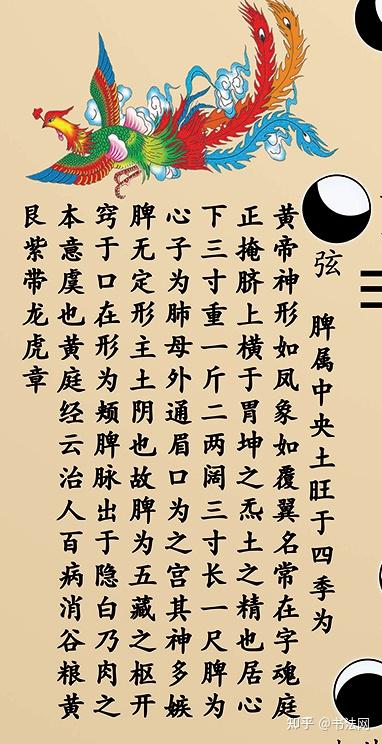 弦
脾属中央土旺于四季为
黄帝神形如凤象如覆翼名常在字魂庭
正掩脐上横于胃坤之炁土之精也居心
下三寸重一斤二两阔三寸长一尺脾为
心子为肺母外通眉口为之宫其神多嫉
脾无定形主土阴也故脾为五藏之枢开
窍于口在形为颊脾脉出于隐白乃肉之
本意虞也黄庭经云治人百病消谷粮黄
艮紫带龙虎章
知乎 @书法网